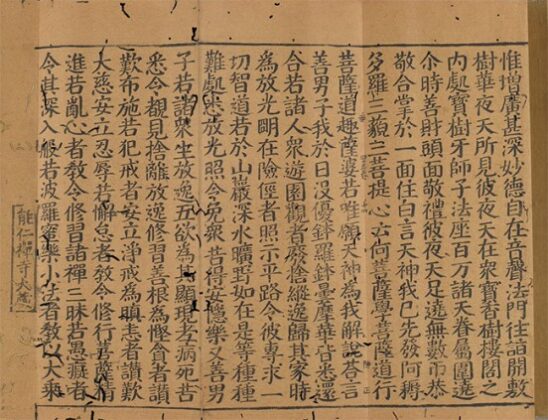 惟增廣甚深妙德自在音聲法門往詣開敷
樹華夜天所見彼夜天在衆寶香樹樓閣之
内處寶樹牙師子法座百万諸天眷屬圍遶
尒時善財頭面敬禮彼夜天足遶無數帀恭
敬合掌於一面住白言天神我已先發阿耨
多羅三藐三菩提心云何菩薩學菩薩道行
菩薩道趣薩婆若唯願天神爲我解說荅言
善男子我於日没優鉢羅鉢曇摩華皆悉還
合若諸人衆遊園觀者廢捨縱逸歸其家時
爲放光明在險徑者照示平路令彼專求一
切智道若於山巖深水曠野如在是等種種
難處悉放光照令免衆苦得安隱樂又善男
子若諸衆生放逸五欲爲其顯現老病死苦
悉令覩見捨離放逸修習善根爲慳貪者讃
歎布施若犯戒者安立淨戒爲瞋恚者讃歎
大慈安立忍辱若懈怠者教令修行菩薩精
進若亂心者教令修習諸禪三昧若愚癡者
令其深入般若波羅蜜樂小法者教以大乘
能仁禪寺大藏